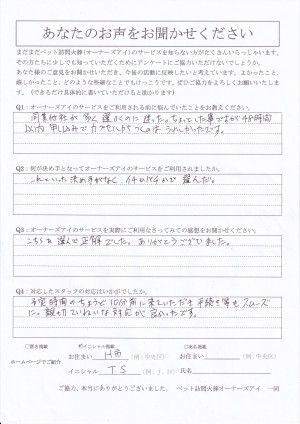 あなたのお声をお聞かせください
まだまだペット訪問火葬(オーナーズアイ)のサービスを知らない方がたくさんいらっしゃいます。
その方たちに少しでも知っていただくためにアンケートにご協力いただけないでしょうか。
あなた様のご意見をお聞かせいただき、今後の活動に反映したいと考えています。よかったこと、
嬉しかったこと、どのような些細なことでもけっこうです。ぜひご協力をよろしくお願いいたします。
(できるだけ具体的に書いていただけると助かります)
Q1:オーナーズアイのサービスをご利用される前に悩んでいたことをお教えください。
同業他社が多く選ぶのに迷った。
以内 申し込みで うれしかったです。
Q2:何が決め手となってオーナーズアイのサービスをご利用されましたか。
これといった決め手がなく、イチかバチかで選んだ。
Q3:オーナーズアイのサービスを実際にご利用なさってみての感想をお聞かせください。
こちらを選んで正解でした。ありがとうございました。
Q4:対応したスタッフの対応はいかがでしたか。
予定時間のちょうど10分前に来ていただき手続き等もスムーズ
に。親切ていねいな対応が良かったです。
□匿名掲載
ホームページでご紹介
イニシャル掲載
お住まい H市 (例:中央区)
イニシャル T S (例:J.H)
□実名掲載
お住まい (例:中央区)
氏名
ご協力、本当にありがとうございました。 ペット訪問火葬オーナーズアイ 一同